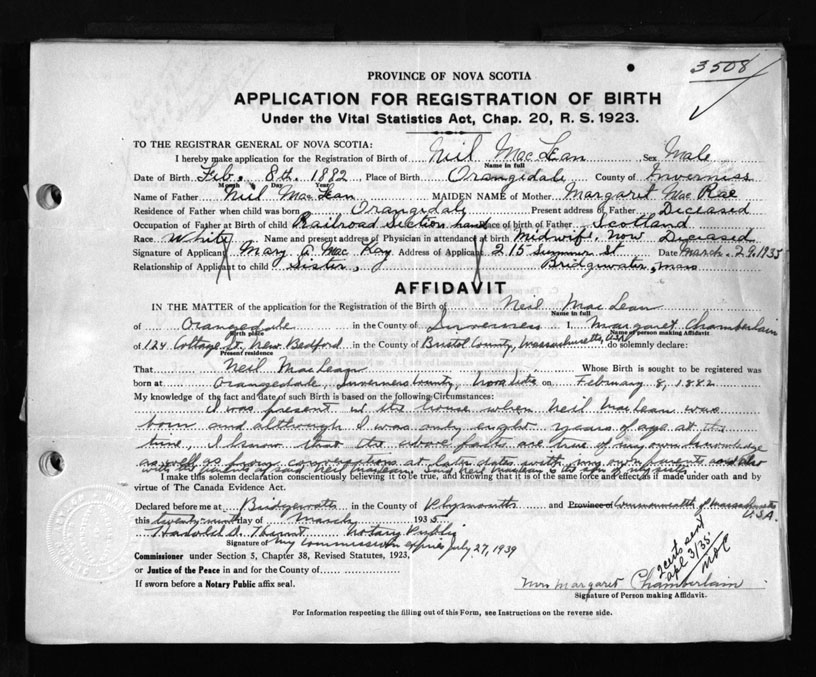 3508
PROVINCE OF NOVA SCOTIA
APPLICATION FOR REGISTRATION OF BIRTH
Under the Vital Statistics Act, Chap. 20, R. S. 1923.
TO THE REGISTRAR GENERAL OF NOVA SCOTIA:
I hereby make application for the Registration of Birth of Neil MacLean Sex Male
Name in full
Date of Birth Feb. 8th. 1882 Place of Birth Orangedale County of Inverness
Month Day Year
Name of Father Neil MacLean MAIDEN NAME of Mother Margaret MacRae
Residence of Father when child was born Orangedale Present address of Father Deceased
Occupation of Father at Birth of child Railroad Section hand Place of birth of Father Scotland
Race White Name and present address of Physician in attendance at birth Midwife, now Deceased
Signature of Applicant Mary A. MacKay Address of Applicant 215 Summer St Date March. 29. 1935
Relationship of Applicant to child Sister, Bridgewater, Mass
AFFIDAVIT
IN THE MATTER of the application for the Registration of the Birth of Neil MacLean
Name in full
of Orangedale in the County of Inverness I, Margaret Chamberlain
Birth place Name of person making Affidavit
of 124 Cottage St. New Bedford in the County of Bristol County, Massachusetts, USA do solemnly declare:
Present residence
That Neil MacLean Whose Birth is sought to be registered was
born at Orangedale, Inverness County, Nova Scotia on February 8, 1882
My knowledge of the fact and date of such Birth is based on the following Circumstances:
I was present in the house when Neil MacLean was
born and although I was only eight years of age at the
time, I know that the above facts are true of my own knowledge
as well as from conversations at later dates with my own parents and also
with the parents of said Neil MacLean. Said Neil MacLean is the son of
I make this solemn declaration conscientiously believing it to be true, and knowing that it is of the same force and effect as if made under oath and by
virtue of The Canada Evidence Act.
Declared before me at Bridgewater in the County of Plymouth and Province of Commonwealth of Massachusetts
U.S.A.
this twenty-ninth day of March 1935
Harold D. Notary Public
Signature of My Commission expires July 27, 1939
Commissioner under Section 5, Chapter 38, Revised Statutes, 1923,
or Justice of the Peace in and for the County of
If sworn before a Notary Public affix seal.
2 certs sent
apl 3/35
Mrs Margaret Chamberlain
Signature of Person making Affidavit.
For Information respecting the filling out of this Form, see Instructions on the reverse side.